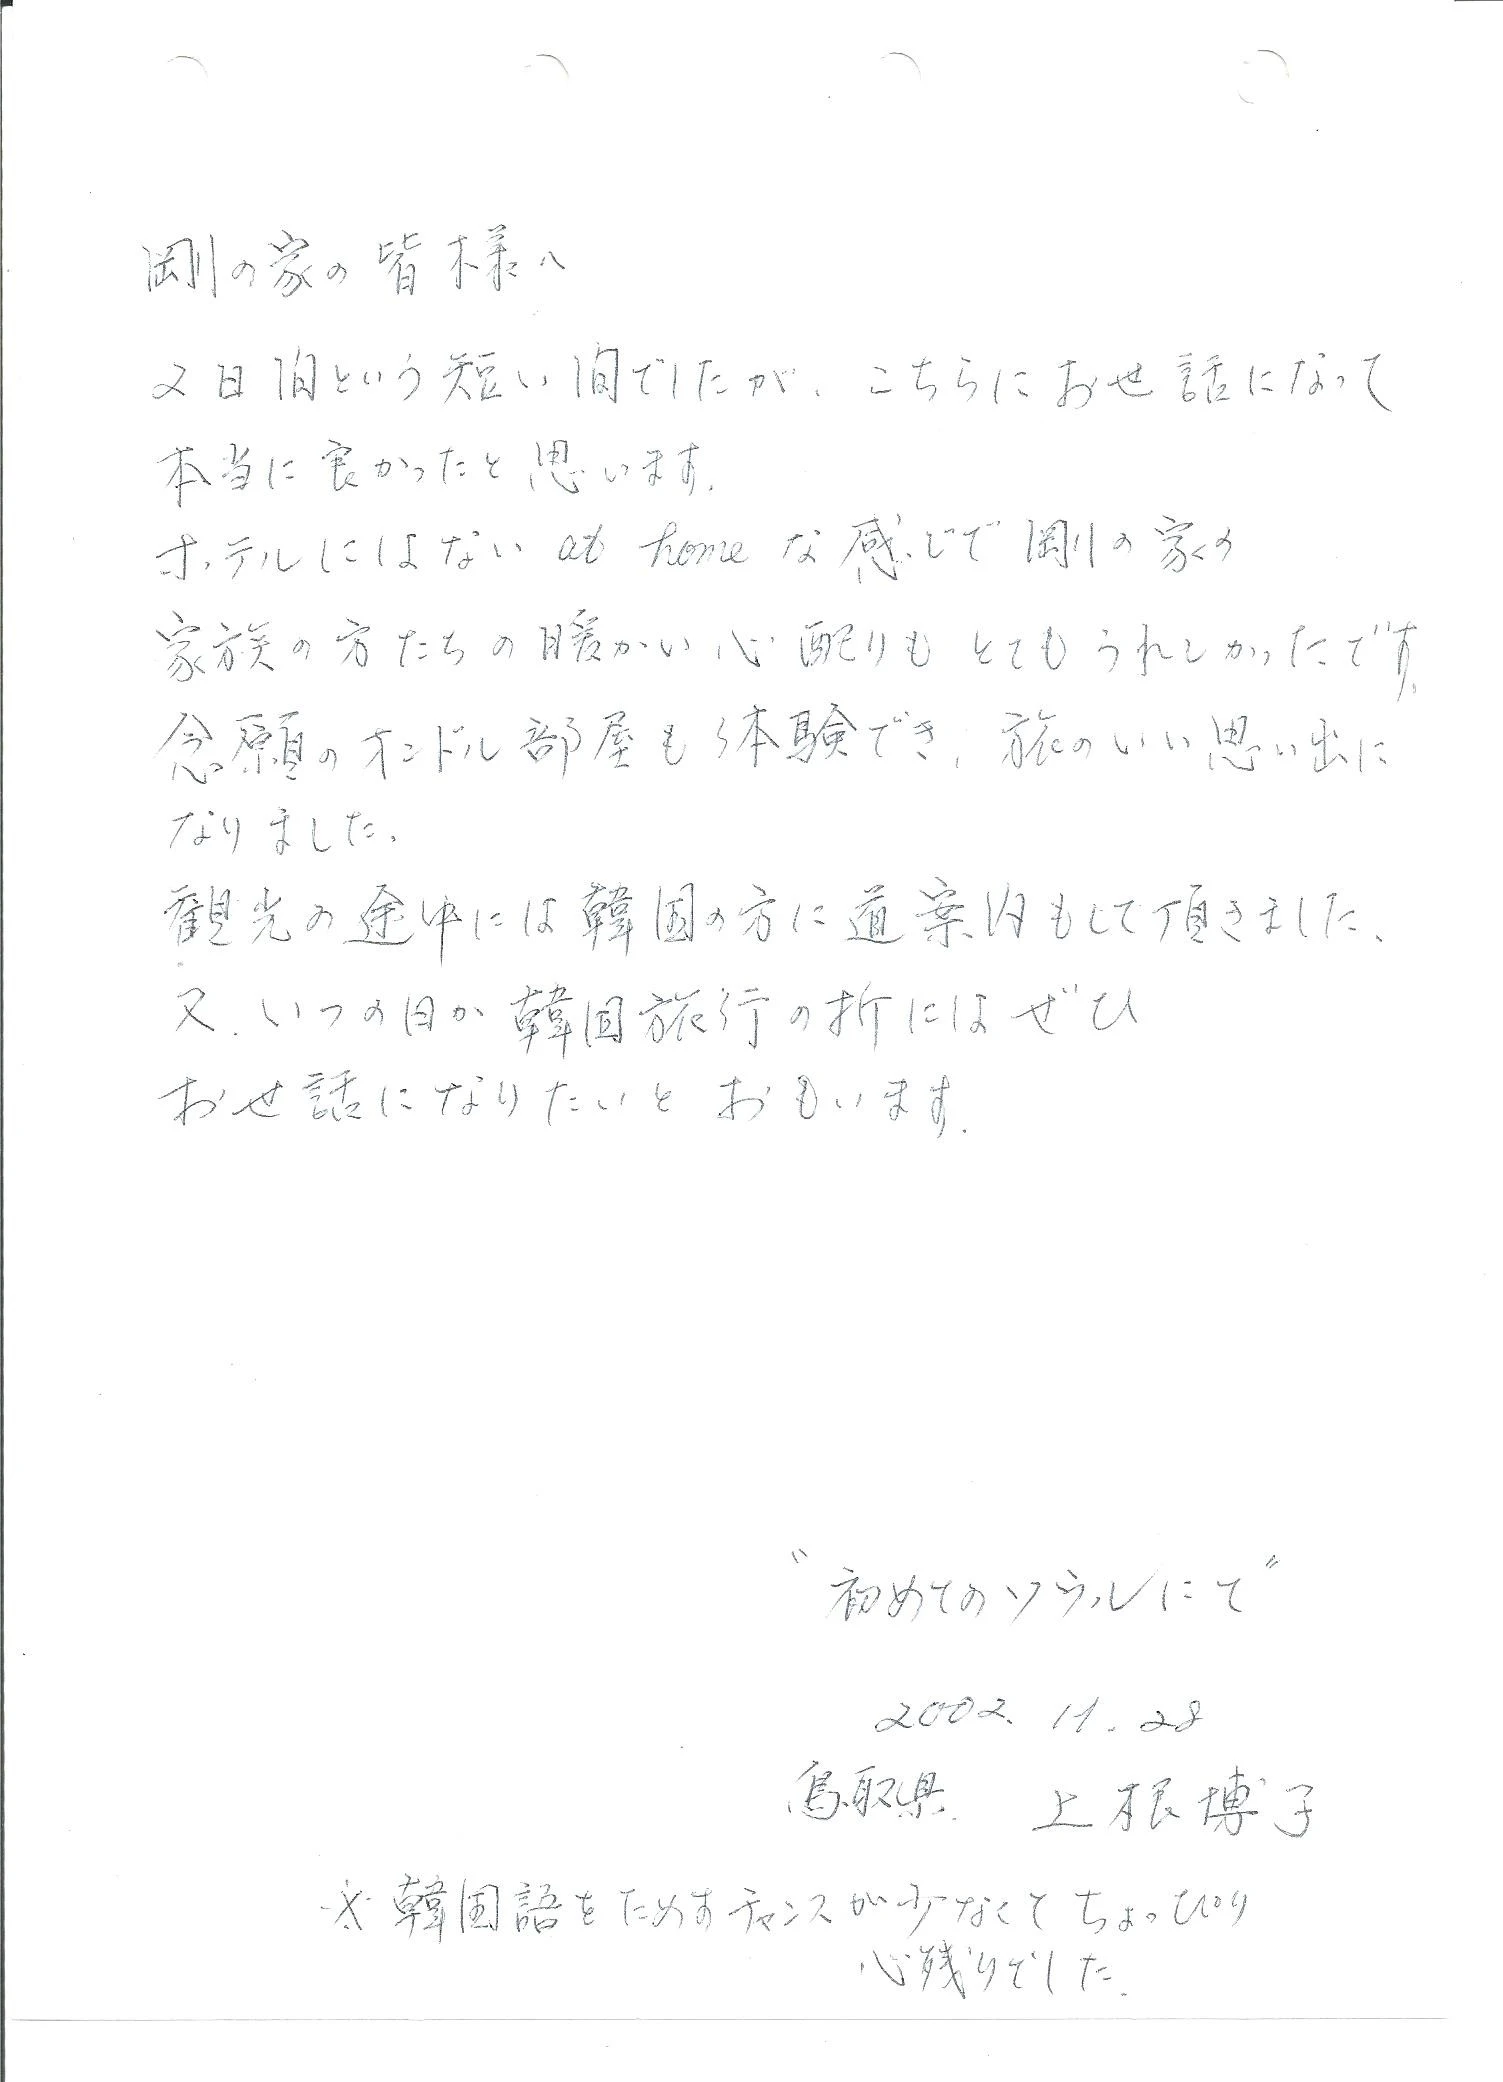 剛の家の皆様へ
2日間という短い間でしたが、こちらにお世話になって
本当に良かったと思います。
ホテルにはない at home な感じで剛の家の
家族の方たちの暖かい心配りもとてもうれしかったです。
念願のオンドル部屋も体験でき、旅のいい思い出に
なりました。
観光の途中には韓国の方に道案内もして頂きました、
又、いつの日か韓国旅行の折にはぜひ
お世話になりたいとおもいます。
"初めてのソウルにて"
2002. 11. 28
鳥取県. 上根博子
※韓国語をためすチャンスが少なくてちょっぴり
心残りでした.